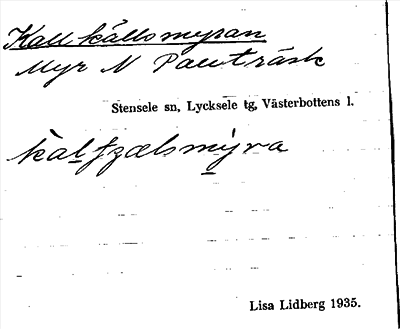 Kallkällsmyran
Myr N Pauträsk
Stensele sn, Lycksele tg, Västerbottens l.
Lisa Lidberg 1935.